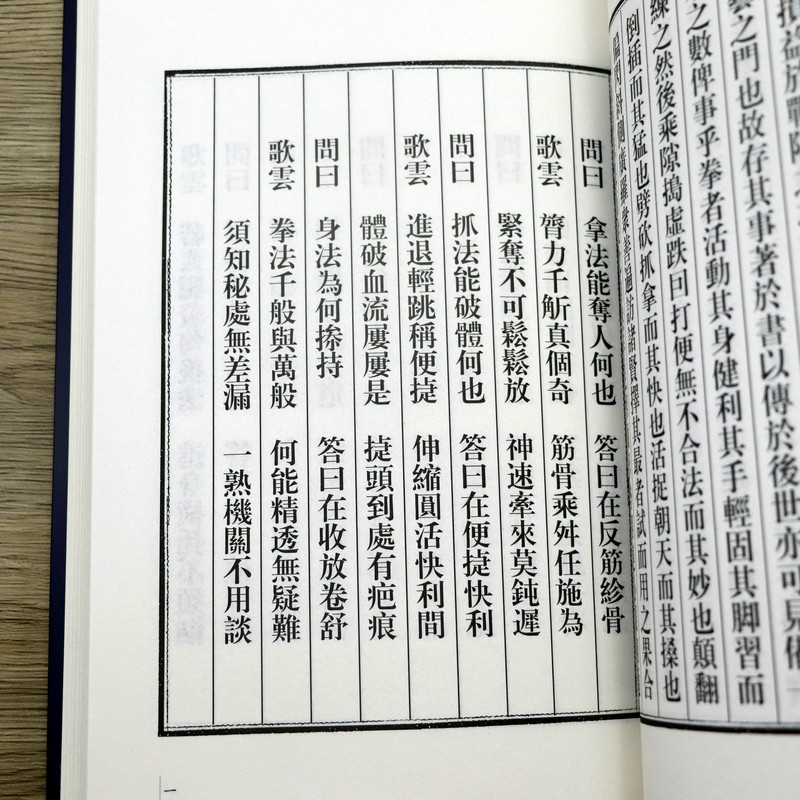 益於戰陣之
雲之門也故存其事著於書以傳於後世亦可見
之數俾事乎拳者活動其身健利其手輕固其脚習而
練之然後乘隙搗虛跌曰打便無不合法而其妙也顛翻
倒插而其猛也劈砍抓拿而其快也活捉朝天而其搡也
善遍訪諸賢擇其最者試而用之果合
問曰 拿法能奪人何也 答曰在反筋紾骨
歌雲 膂力千斪真個奇 筋骨乘舛任施為
緊奪不可鬆鬆放 神速牽來莫鈍遲
問曰 抓法能破體何也 答曰在便捷快利
歌雲 進退輕跳稱便捷 伸縮圓活快利間
體破血流屢屢是 㨗頭到處有疤痕
問曰 身法為何摻持 答曰在收放卷舒
歌雲 拳法千般與萬般 何能精透無疑難
須知秘處無差漏 一熟機關不用談
一